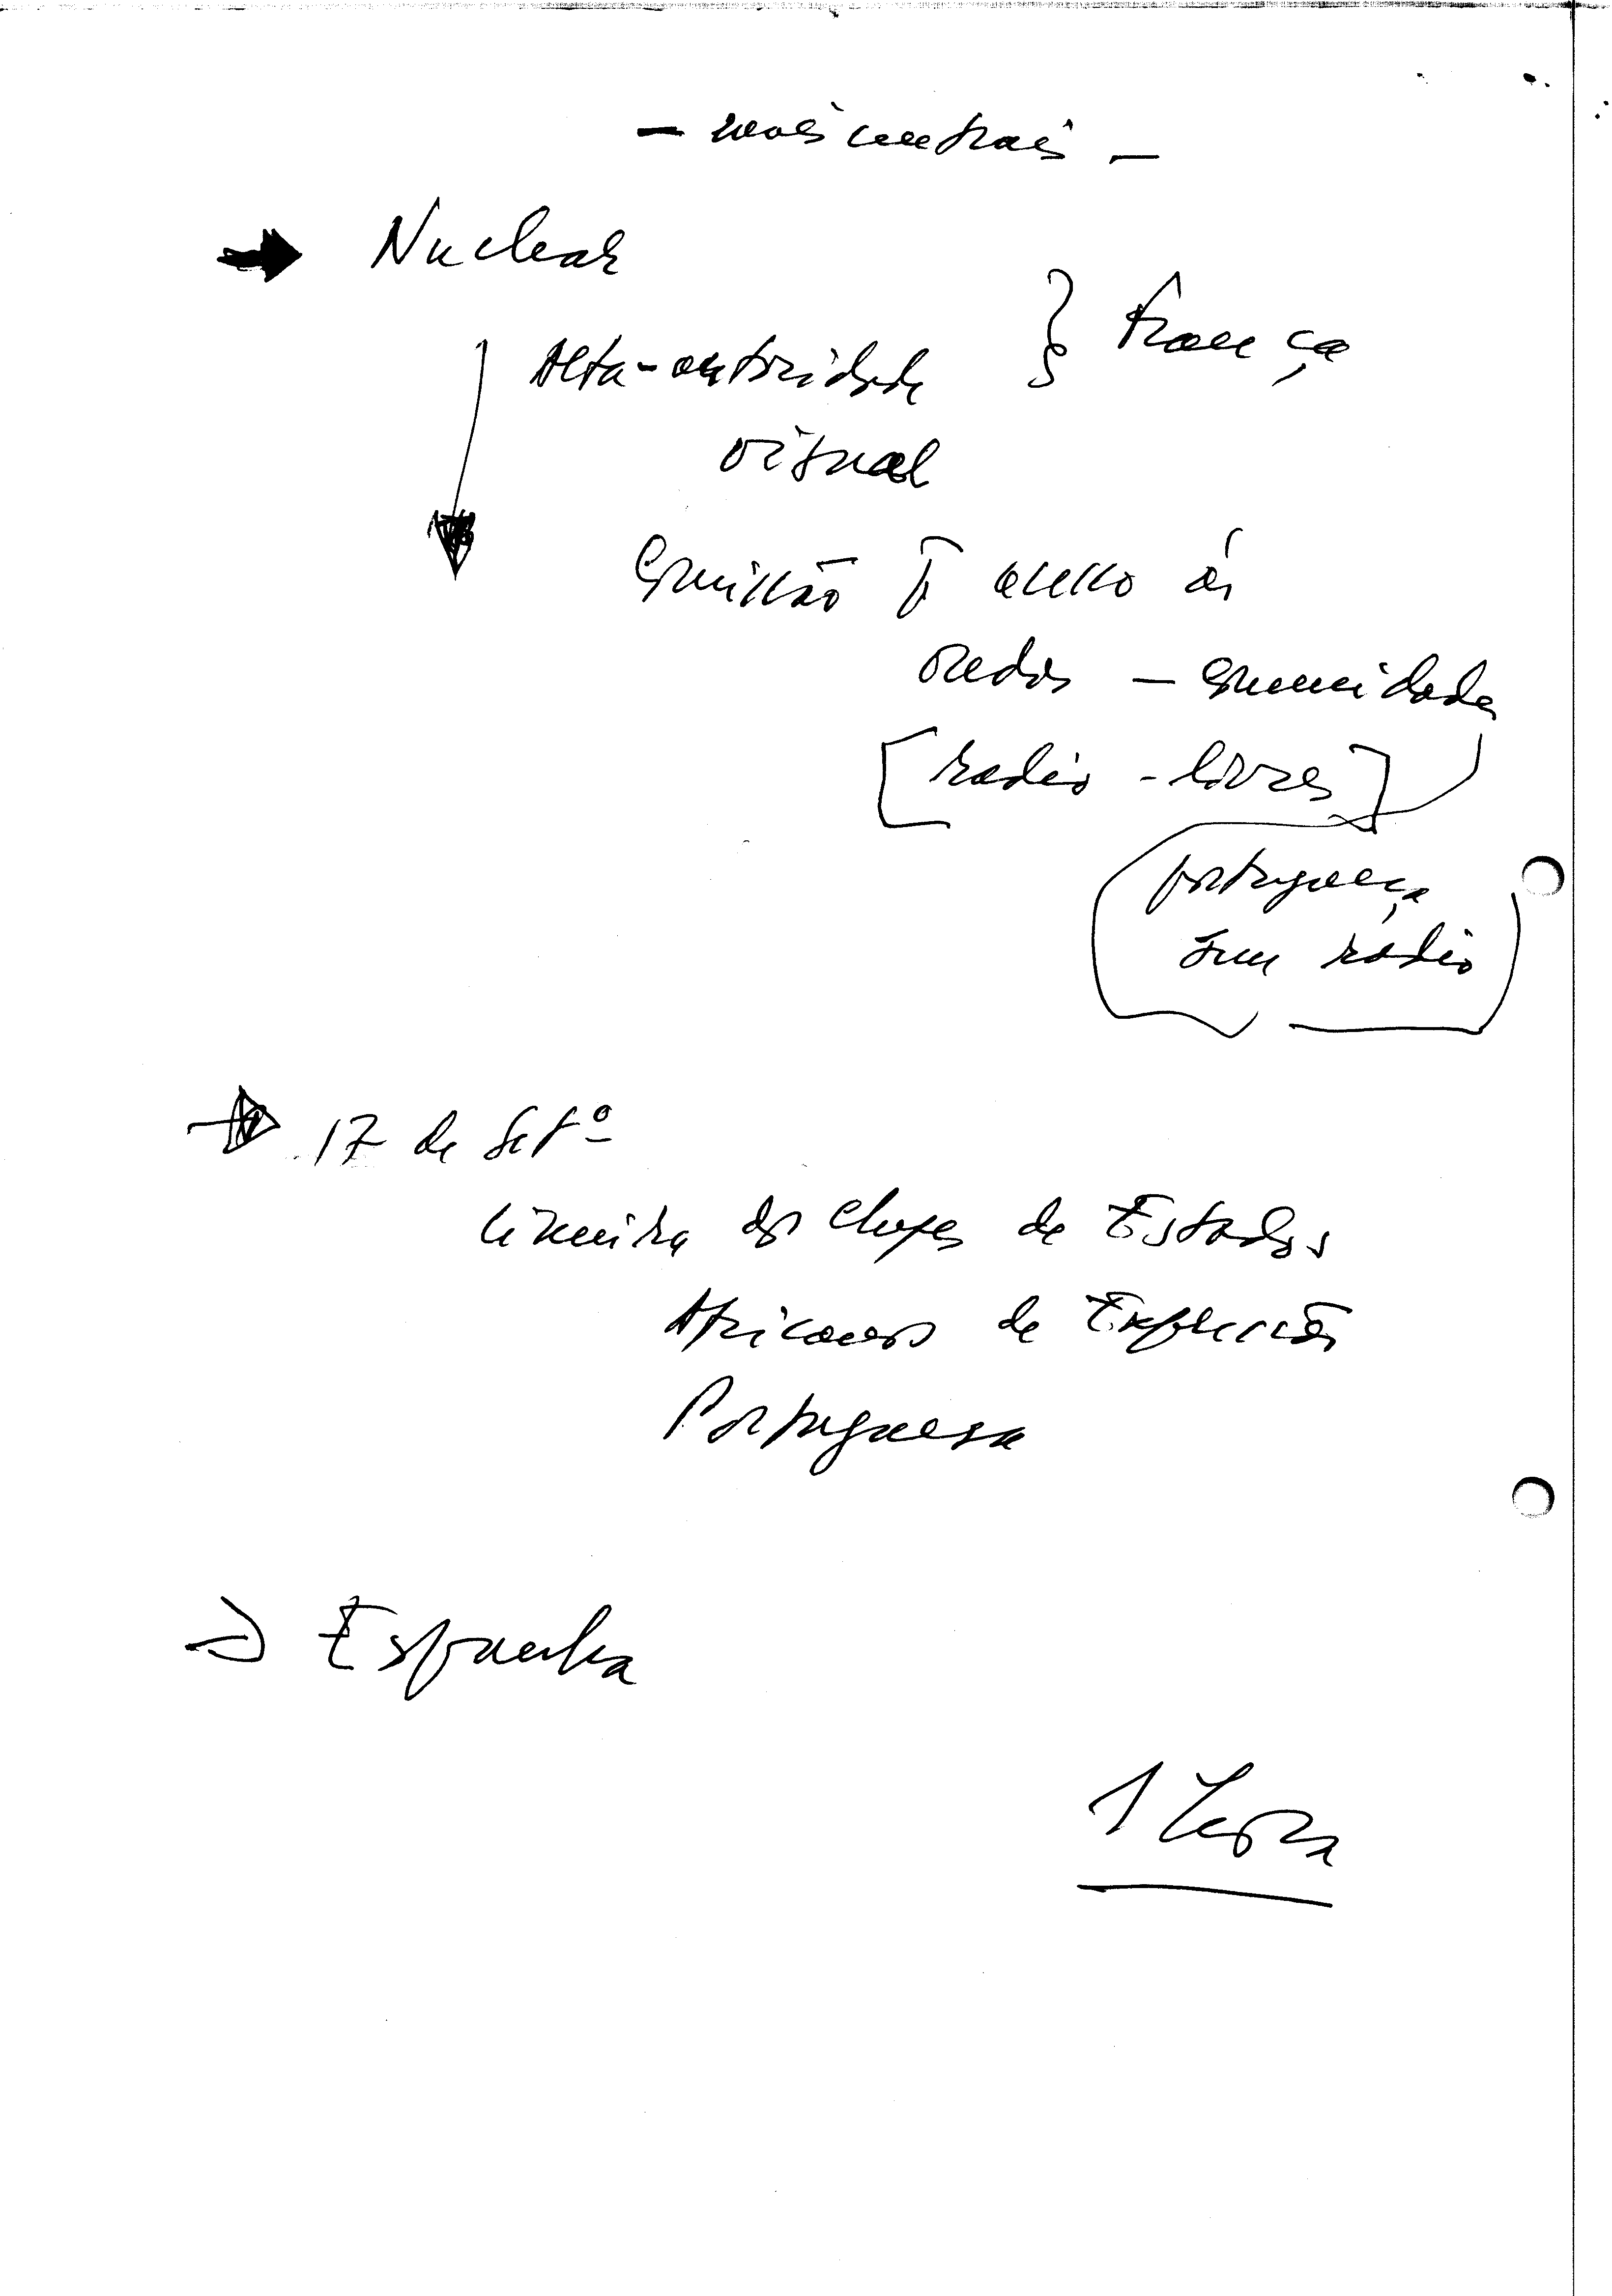 → Nuclear
Alta-autoridade } França
visual
Comissão p acesso às
ondas - comunidade
[radio - livres]
portuguesa
sem rádio
→ 17 de Setº
Cimeira dos Chefes de Estados
Africanos de Expressão
Portuguesa
→ Espanha